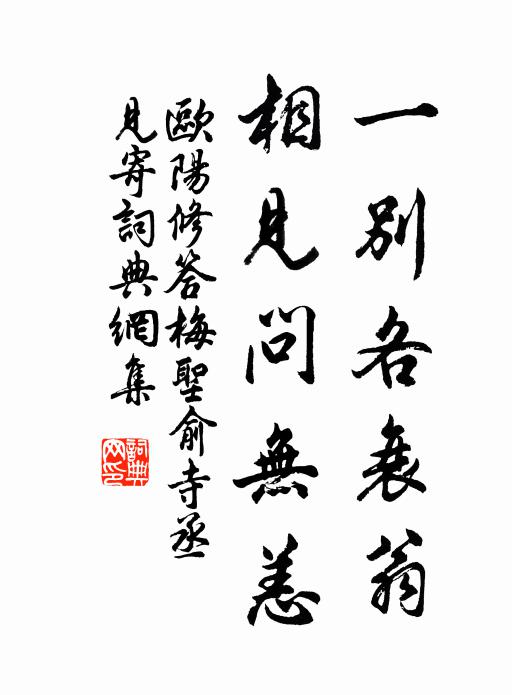 一別各衰翁
相見問無恙
歐陽修答梅聖俞寺丞
見寄詞典網集
詞典
网印